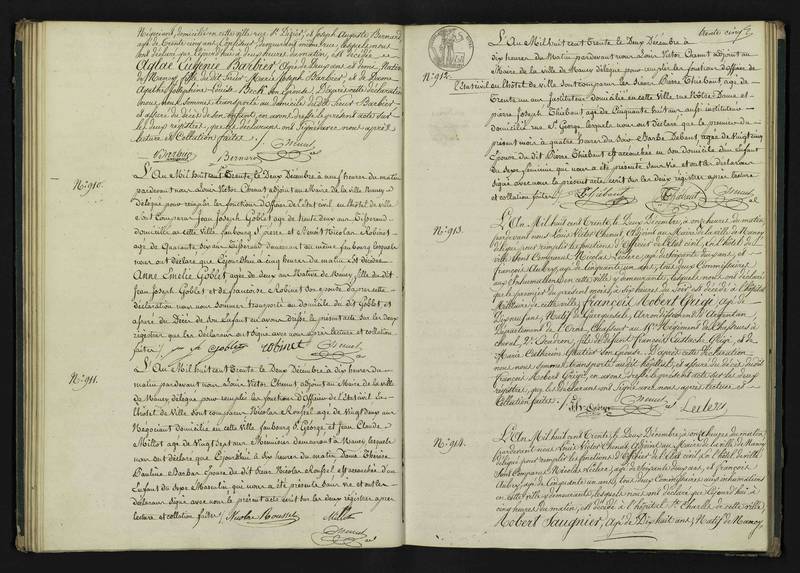 Négociant, domicilié en cette ville rue St Dizier, et Joseph Auguste Bernard
âgé de Trente cinq ans
ont déclaré que cejourd'hui à deux heures du matin, est décédée
Aglaé Eugénie Barbier, âgée de deux ans et demi Native
de Nancy, fille du dit Sieur Marie Joseph Barbier, et de Dame
son Epouse, D'après cette déclaration
nous nous sommes transporté au domicile du dit Sieur Barbier,
et assuré du décès de son Enfant, en avons dressé le présent acte sur
les deux registres, que les déclarans ont signé avec nous après
lecture et collation faites ./.
Barbier Bernard Chenut
N.° 910.
L'An Mil huit cent Trente, le Deux Décembre à neuf heures du matin
pardevant nous Louis Victor Chenut, adjoint au Maire de la ville de Nancy
Délégué pour remplir les fonctions d'Officier de l'état civil en l'hôtel de ville
sont Comparus Jean Joseph Goblet âgé de trente deux ans Tisserand
domicilié en cette Ville, faubourg St Pierre et Benoit Nicolas Robinet
âgé de Quarante six ans Tisserand demeurant au même faubourg lesquels
nous ont déclaré que Cejourd'hui à cinq heures du matin Est décédée
Anne Emelie Goblet âgée de deux ans Native de Nancy, fille du dit
Jean Joseph Goblet et de Françoise Robinet son Epouse, D'après cette
déclaration nous nous sommes transporté au domicile du dit Goblet et
assuré du Décès de son Enfant en avons dressé le présent acte sur les deux
registres que les Déclarans ont signé avec nous après lecture et collation
faites ./. Goblet robinet Chenut
N.° 911.
L'An Mil huit cent Trente, le Deux Décembre à dix heures du
matin pardevant nous Louis Victor Chenut adjoint au Maire de la ville
de Nancy délégué pour remplir les fonctions d'Officier de l'état civil En
l'hôtel de Ville sont comparus Nicolas Roussel âgé de Vingt deux ans
Négociant domicilié en cette ville faubourg St George, et Jean Claude
Millot âgé de Vingt sept ans Menuisier demeurant à Nancy lesquels
nous ont déclaré que Cejourd'hui à six heures du matin Dame Thérèse
Pauline Barbar Epouse du dit Sieur Nicolas Roussel est accouchée d'un
Enfant du sexe Masculin qui nous a été présenté sans vie et ont les
déclarans signé avec nous le présent acte écrit sur les deux registres après
lecture et collation faites ./. Nicolas Roussel Millot
Chenut
trente cinq
N.° 912.
L'An Mil huit cent Trente le Deux Décembre à
dix heures du Matin pardevant nous Louis Victor Chenut adjoint au
Maire de la ville de Nancy délégué pour remplir les fonctions d'officier de
l'état civil en l'hôtel de Ville sont comparus les Sieurs Pierre Thiébaut âgé de
Trente un ans Instituteur Domicilié en cette Ville rue Notre Dame et
pierre Joseph Thiébaut âgé de Cinquante huit ans aussi instituteur
domicilié rue St George, lesquels nous ont déclaré que le premier du
présent mois à quatre heures du soir Barbe Debout, âgée de Vingt cinq
Epouse du dit Pierre Thiébaut Est accouchée en son Domicile d'un Enfant
du sexe féminin qui nous a été présenté sans Vie et ont les déclarans
signé avec nous le présent acte, écrit sur les deux registres après lecture
et collation faites ./. Thiébaut Thiébaut Chenut
N.° 913.
L'An Mil huit cent Trente, le Deux Décembre, à onze heures du matin,
pardevant nous Louis Victor Chenut Adjoint au Maire de la ville de Nancy
délégué pour remplir les fonctions d'Officier de l'état Civil, En l'hôtel de
Ville sont Comparus Nicolas Leclerc âgé de soixante deux ans, et
François Aubry âgé de Cinquante un ans, tous deux Commissaires
aux Inhumations en cette ville y demeurants, lesquels nous ont déclaré
que le premier du présent mois, à six heures du soir est décédé à l'hôpital
Militaire de cette ville, François Robert Grigi, âgé de
Département de l'Orne, Chasseur au Régiment de Chasseurs à
cheval, 2e Escadron, fils de défunt François Eustache Grigi, et de
Marie Catherine son Epouse. D'après cette Déclaration
nous nous sommes transporté au dit hôpital, et assuré du décès du dit
François Robert Grigi, en avons dressé le présent acte sur les deux
registres, que les Déclarans ont signé avec nous après lecture et
Collation faites ./. Fr Aubry Chenut Leclerc
N.° 914.
L'An Mil huit cent Trente, le Deux Décembre, à onze heures du matin,
pardevant nous Louis Victor Chenut, Adjoint au Maire de la ville de Nancy
délégué pour remplir les fonctions d'Officier de l'état Civil, En l'hôtel de Ville
sont Comparus Nicolas Leclerc, âgé de soixante deux ans, et François
Aubry âgé de Cinquante un ans, tous deux Commissaires aux inhumations
en cette ville y demeurants, lesquels nous ont déclaré que Cejourd'hui à
cinq heures du matin, est décédé à l'hôpital St Charles de cette ville,
Robert Saugnier, âgé de Dix huit ans, Natif de Nancy,